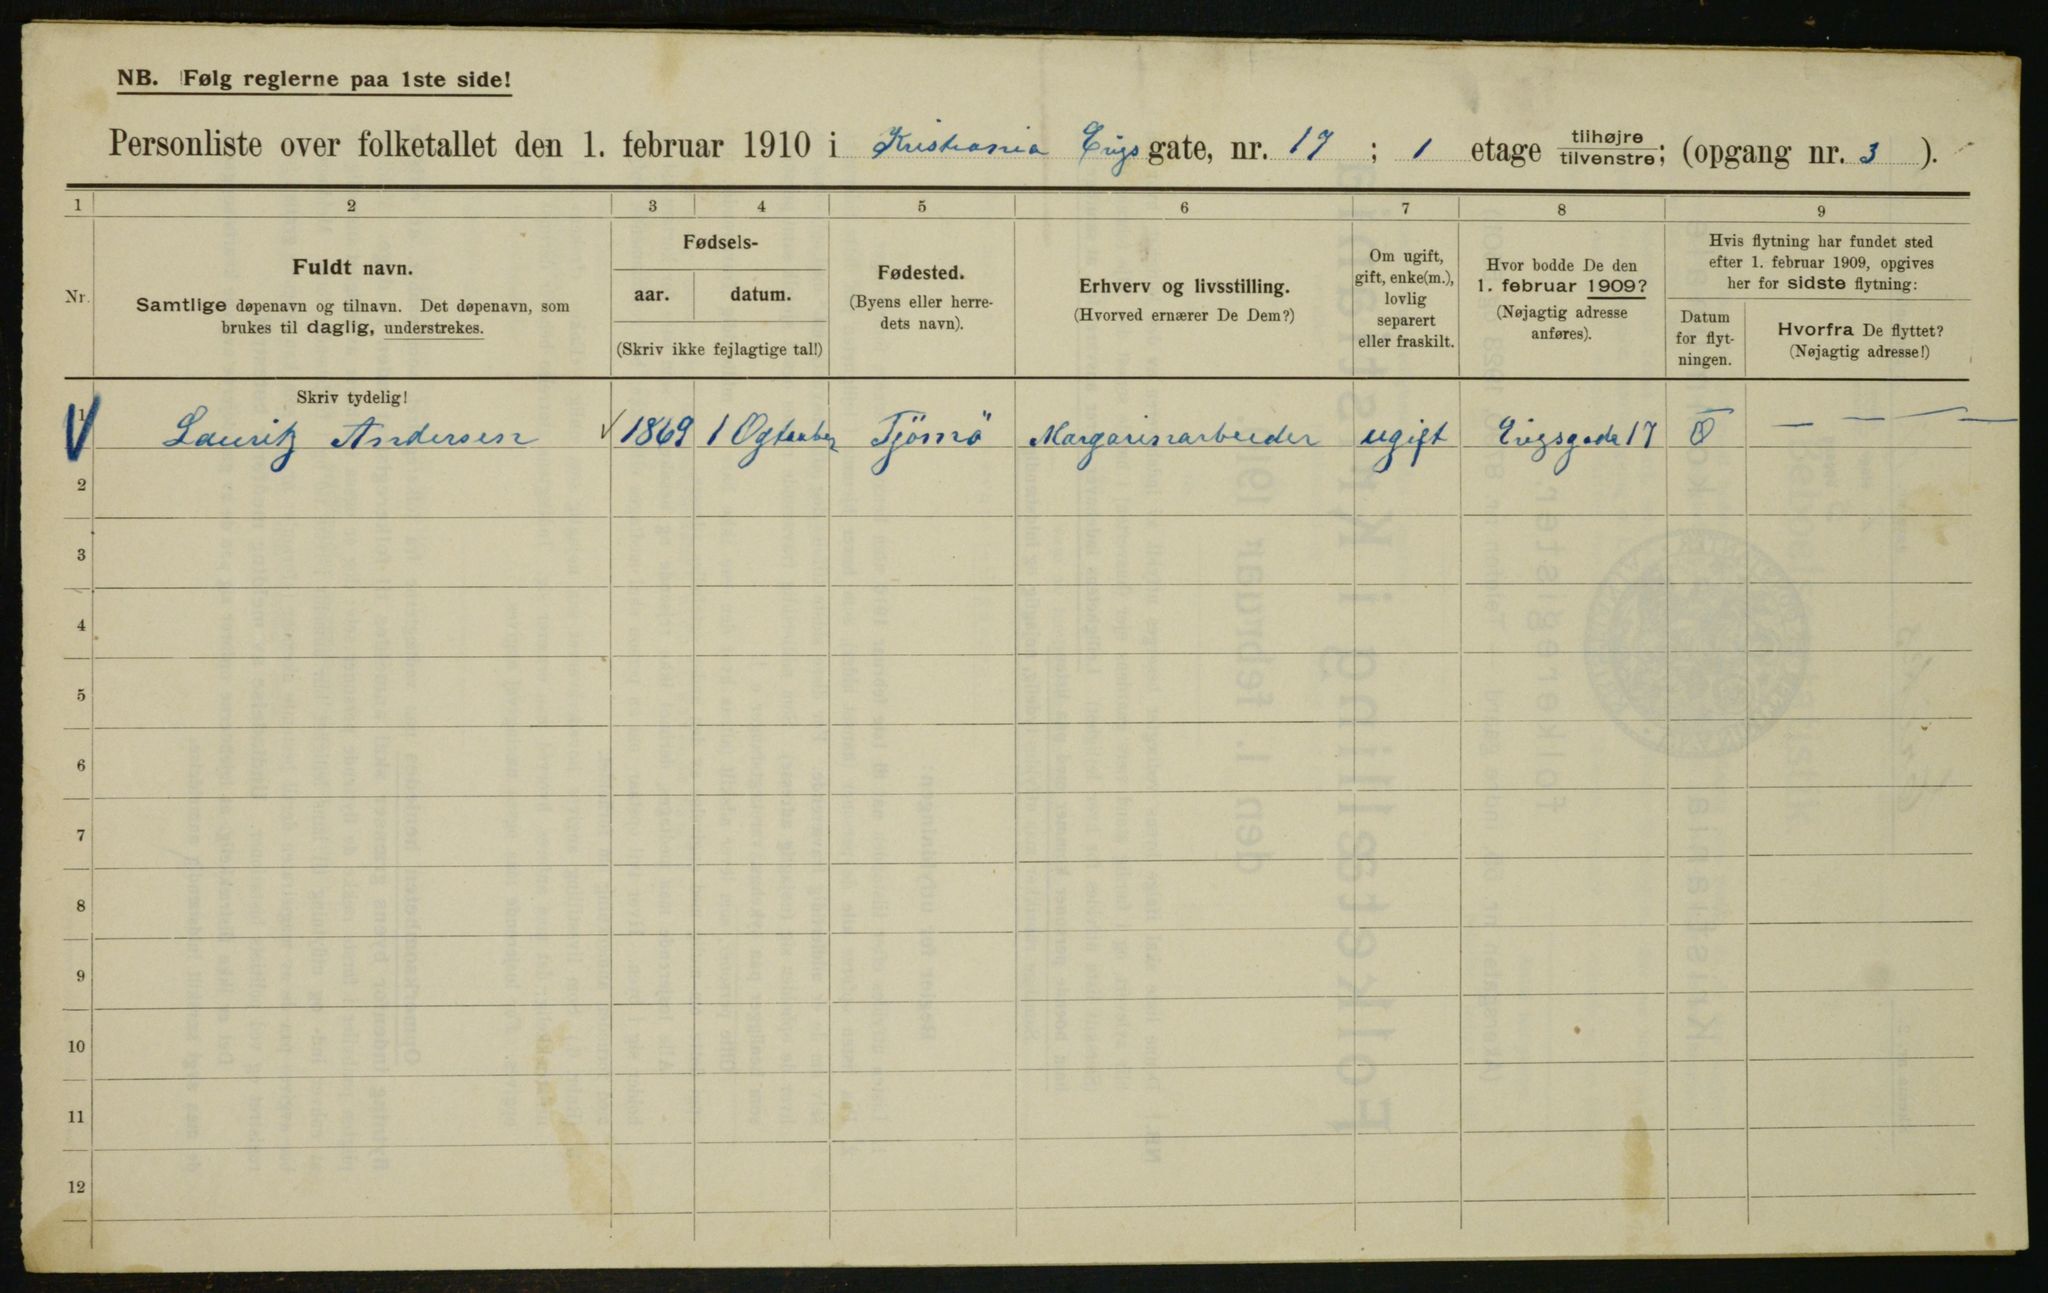 NB. Følg reglerne paa 1ste side!
Personliste over folketallet den 1. februar 1910 i Kristiania Erigs gate, nr. 17 ; 1 etage tilhøjre tilvenstre; (opgang nr. 3 ).
1 2 3 4 5 6 7 8 9
Nr.
Fuldt navn.
Samtlige døpenavn og tilnavn. Det døpenavn, som
brukes til daglig, understrekes.
Fødsels-
aar. datum.
(Skriv ikke fejlagtige tal!)
Fødested.
(Byens eller herre-
dets navn).
Erhverv og livsstilling.
(Hvorved ernærer De Dem?)
Om ugift,
gift, enke(m.),
lovlig
separert
eller fraskilt.
Hvor bodde De den
1. februar 1909?
(Nøjagtig adresse
anføres).
Hvis flytning har fundet sted
efter 1. februar 1909, opgives
her for sidste flytning:
Datum
for flyt-
ningen.
Hvorfra De flyttet?
(Nøjagtig adresse!)
Skriv tydelig!
1 Lauritz Andersen 1869 1 Ogtauber Tjömö Margarinarbeider ugift Erigsgade 17 — — — —
2
3
4
5
6
7
8
9
10
11
12